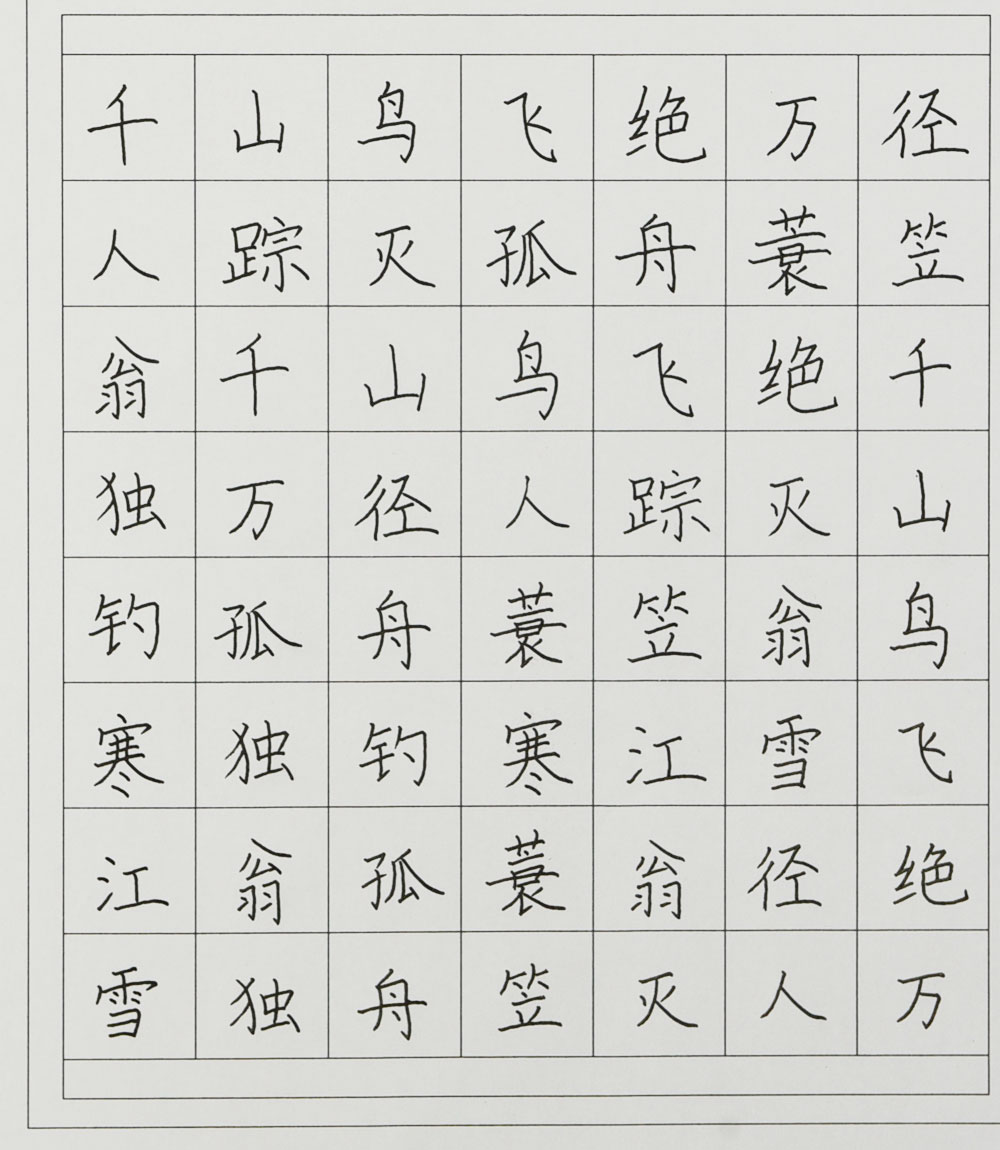 千山鸟飞绝万径
人踪灭孤舟蓑笠
翁千山鸟飞绝千
独万径人踪灭山
钓孤舟蓑笠翁鸟
寒独钓寒江雪飞
江翁孤蓑翁径绝
雪独舟笠灭人万